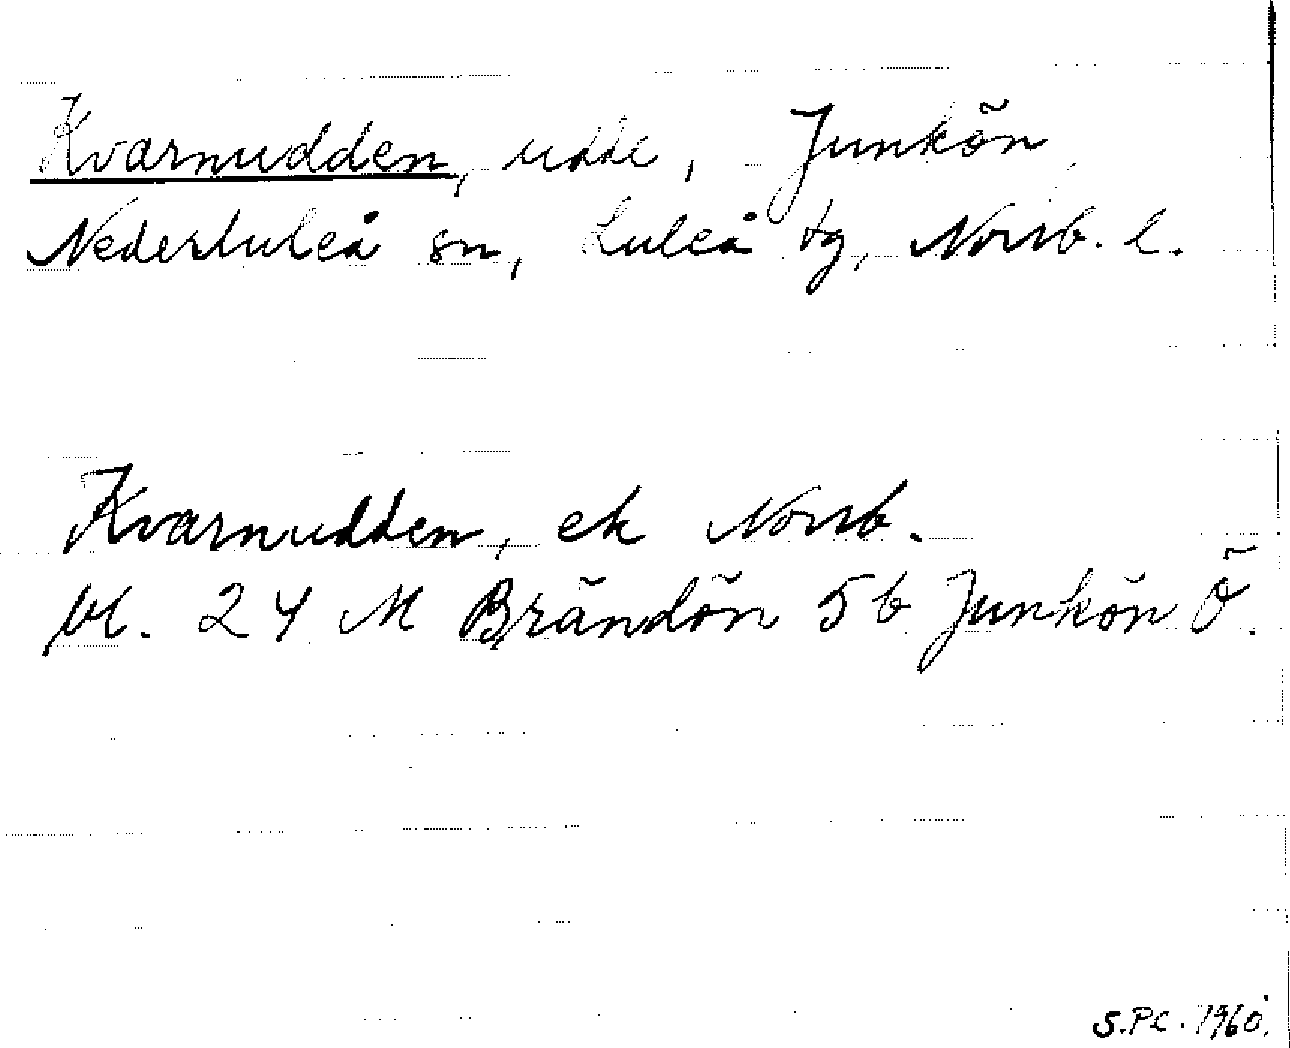 Kvarnudden, udde, Junkön,
Nederluleå sn, Luleå tg, Norrb. l.
Kvarnudden, ek Norrb.
bl. 24 M Brändön 5b Junkön Ö.
S.PC. 1960.